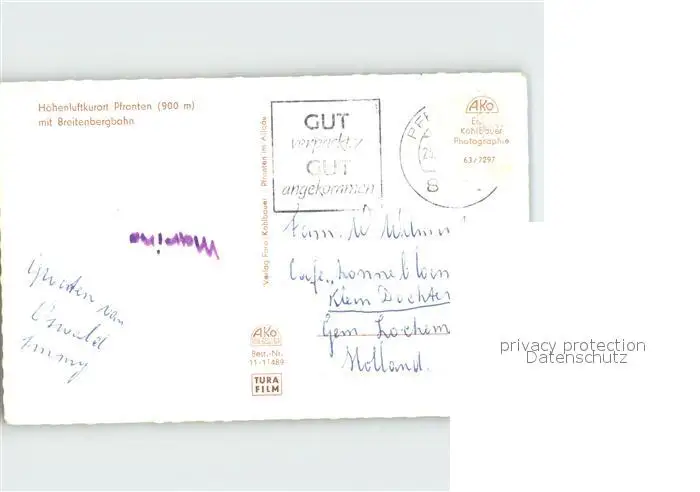 Höhenluftkurort Pfronten (900 m)
mit Breitenbergbahn
Verlag Foto-Kohlbauer Pfronten im Allgäu
GUT
verpackt
GUT
angekommen
PF
8
AKo
Kohlbauer
Photographie
63/7297
Groeten van
Oswald
Fam. W
Cafe „Zonnebloem
Klein Dochter
Gem. Lochem
Holland.
AKo
Best.-Nr.
11-11489
TURA
FILM
privacy protection
Datenschutz